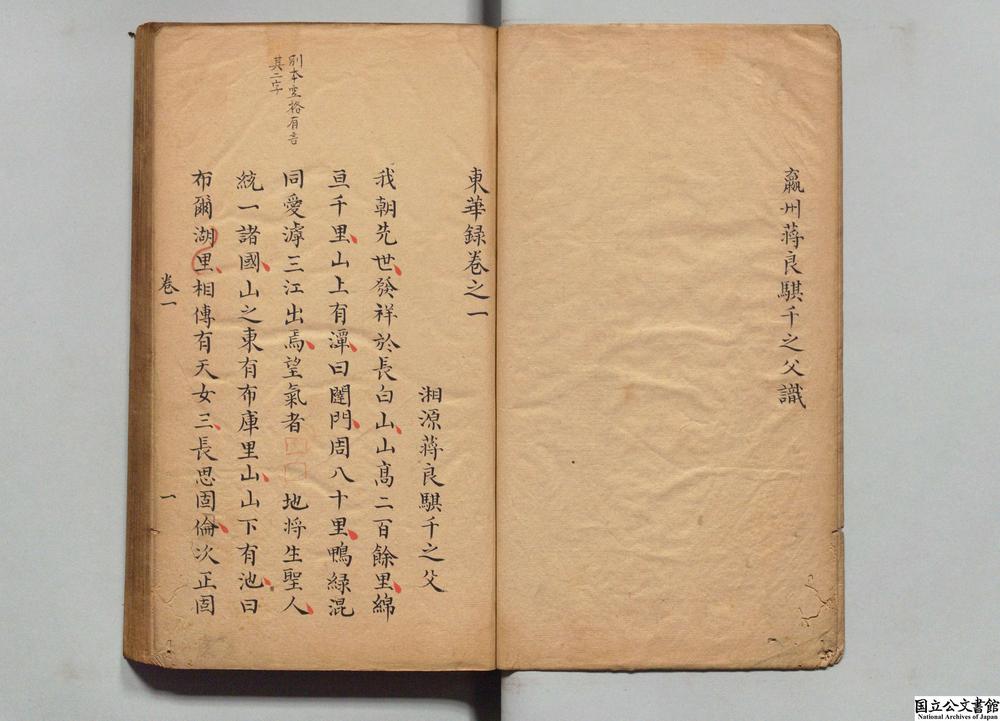 瀛州蔣良騏千之父識
東華録卷之一
湘源蔣良騏千之父
我朝先世發祥於長白山山髙二百餘里綿
亘千里山上有潭曰闥門周八十里鴨緑混
同愛滹三江出焉望氣者□□地将生聖人
統一諸國山之東有布庫里山山下有池曰
布爾湖里相傳有天女三長恩固倫次正固
別本空格有言
其二字
卷一
一
国立公文書館
National Archives of Japan